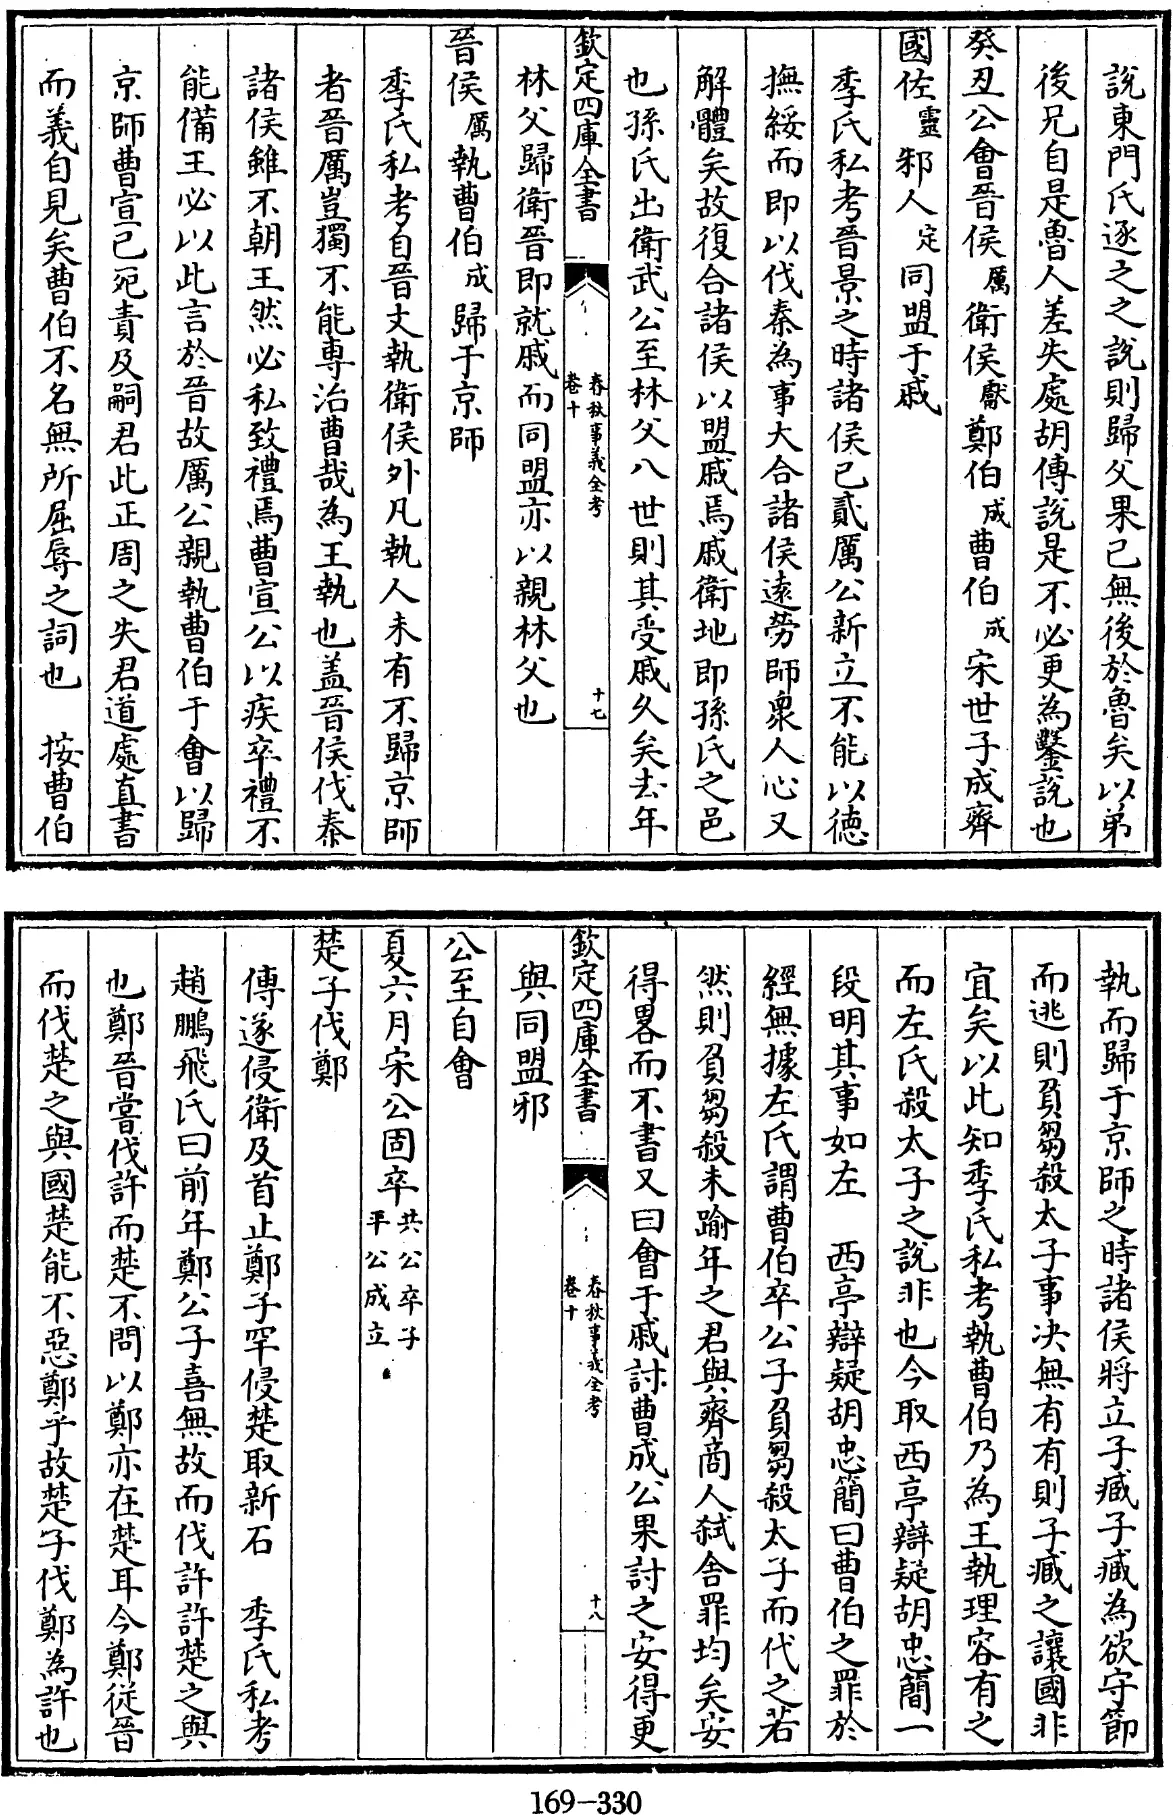 說東門氏逐之之說則歸父果已無後於魯矣以弟
後兄自是魯人差失處胡傳說是不必更為鑿說也
癸丑公會晉侯厲衛侯獻鄭伯成曹伯成宋世子成齊
國佐靈邾人定同盟于戚
季氏私考晉景之時諸侯已貳厲公新立不能以德
撫綏而即以伐秦為事大合諸侯遠勞師衆人心又
解體矣故復合諸侯以盟戚焉戚衛地即孫氏之邑
也孫氏出衛武公至林父八世則其受戚久矣去年
欽定四庫全書
春秋事義全考
卷十
十七
林父歸衛晉即就戚而同盟亦以親林父也
晉侯厲執曹伯成歸于京師
季氏私考自晉文執衛侯外凡執人未有不歸京師
者晉厲豈獨不能專治曹哉為王執也盖晉侯伐秦
諸侯雖不朝王然必私致禮焉曹宣公以疾卒禮不
能備王必以此言於晉故厲公親執曹伯于會以歸
京師曹宣已死責及嗣君此正周之失君道處直書
而義自見矣曹伯不名無所屈辱之詞也　按曹伯
執而歸于京師之時諸侯將立子臧子臧為欲守節
而逃則負芻殺太子事决無有有則子臧之讓國非
宜矣以此知季氏私考執曹伯乃為王執理容有之
而左氏殺太子之說非也今取西亭辯疑胡忠簡一
段明其事如左　西亭辯疑胡忠簡曰曹伯之罪於
經無據左氏謂曹伯卒公子負芻殺太子而代之若
然則負芻殺未踰年之君與齊商人弒舍罪均矣安
得畧而不書又曰會于戚討曹成公果討之安得更
欽定四庫全書
春秋事義全考
卷十
十八
與同盟邪
公至自會
夏六月宋公固卒共公卒子
平公成立
楚子伐鄭
傳遂侵衛及首止鄭子罕侵楚取新石　季氏私考
趙鵬飛氏曰前年鄭公子喜無故而伐許許楚之與
也鄭晉嘗伐許而楚不問以鄭亦在楚耳今鄭從晉
而伐楚之與國楚能不惡鄭乎故楚子伐鄭為許也
169-330